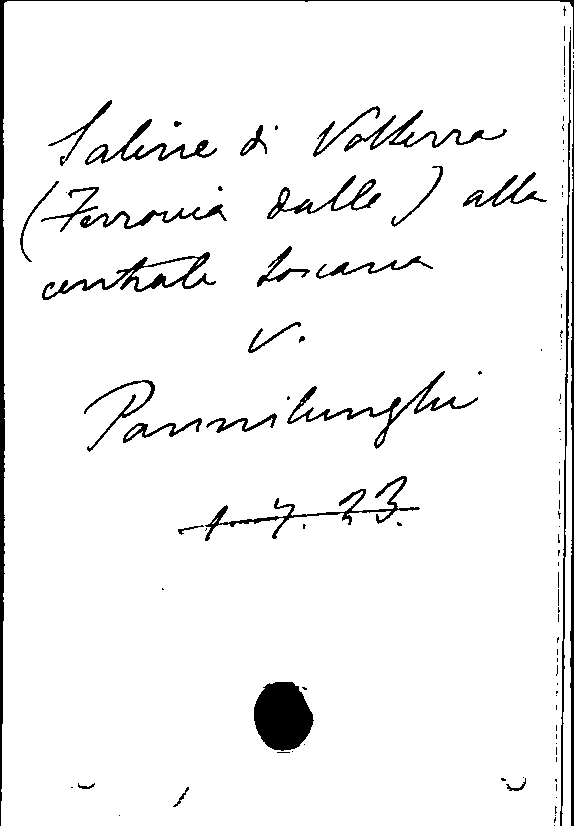 Saline di Volterra
(Ferrovia dalle) alla
centrale toscana
v.
Pannilunghi
1. 7. 23.